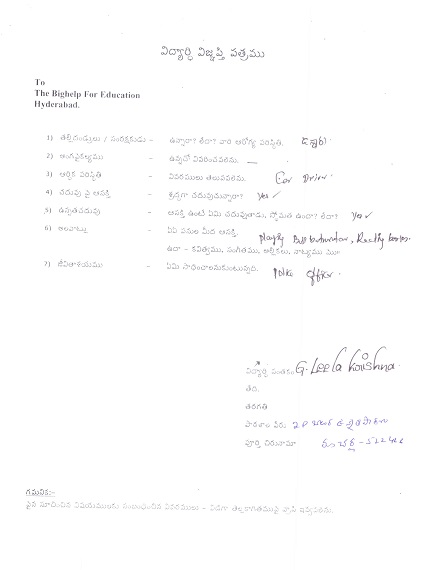 విద్యార్థి విజ్ఞప్తి పత్రము
To
The Bighelp For Education
Hyderabad.
1) తల్లిదండ్రులు / సంరక్షకుడు - ఉన్నారా? లేదా? వారి ఆరోగ్య పరిస్థితి.
2) అంగవైకల్యము - ఉన్నచో వివరించవలెను. —
3) ఆర్థిక పరిస్థితి - వివరములు తెలుపవలెను. Car Driver
4) చదువు పై ఆసక్తి - శ్రద్ధగా చదువుచున్నారా? Yes ✓
5) ఉన్నతచదువు - ఆసక్తి ఉంటే ఏమి చదువుతాడు, స్తోమత ఉందా? లేదా? Yes ✓
6) అలవాట్లు - ఏఏ పనుల మీద ఆసక్తి. playing
ఉదా - కవిత్వము, సంగీతము, ఆర్టికలు, నాట్యము మొ॥
7) జీవితాశయము - ఏమి సాధించాలనుకుంటున్నది. police officer.
విద్యార్థి సంతకం G. Leela Krishna.
తేది.
తరగతి
పాఠశాల పేరు
పూర్తి చిరునామా
గమనిక:-
పైన సూచించిన విషయములకు సంబంధించిన వివరములు - విడిగా తెల్లకాగితముపై వ్రాసి ఇవ్వవలెను.